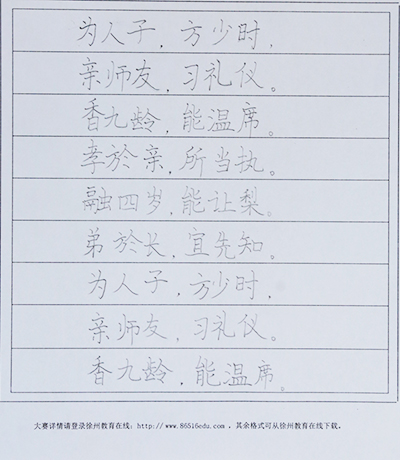 为人子，方少时，
亲师友，习礼仪。
香九龄，能温席。
孝於亲，所当执。
融四岁，能让梨。
弟於长，宜先知。
为人子，方少时，
亲师友，习礼仪。
香九龄，能温席。
大赛详情请登录徐州教育在线：http://www.86516edu.com ，其余格式可从徐州教育在线下载。